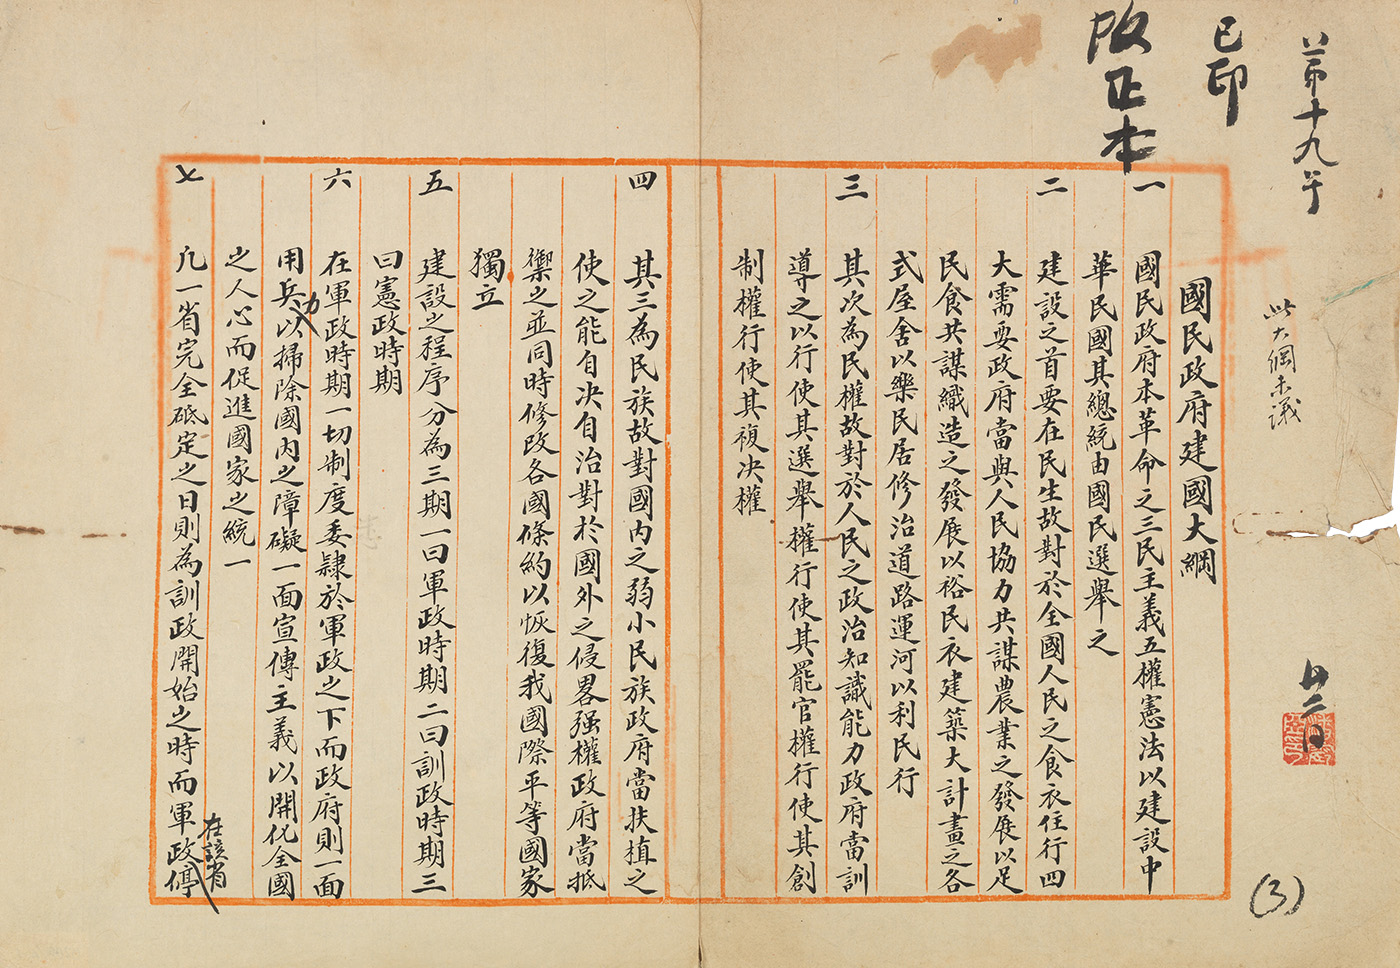 十九
已印
改正本
此大綱未議
(3)
國民政府建國大綱
一 國民政府本革命之三民主義五權憲法以建設中
華民國其總統由國民選舉之
二 建設之首要在民生故對於全國人民之食衣住行四
大需要政府當與人民協力共謀農業之發展以足
民食共謀織造之發展以裕民衣建築大計畫之各
式屋舍以樂民居修治道路運河以利民行
三 其次為民權故對於人民之政治知識能力政府當訓
導之以行使其選舉權行使其罷官權行使其創
制權行使其複決權
四 其三為民族故對國內之弱小民族政府當扶植之
使之能自決自治對於國外之侵畧强權政府當抵
禦之並同時修改各國條約以恢復我國際平等國家
獨立
五 建設之程序分為三期一曰軍政時期二曰訓政時期三
曰憲政時期
六 在軍政時期一切制度委隸於軍政之下而政府則一面
用兵力以掃除國內之障礙一面宣傳主義以開化全國
之人心而促進國家之統一
七 凡一省完全砥定之日則為訓政開始之時而軍政停
在該省